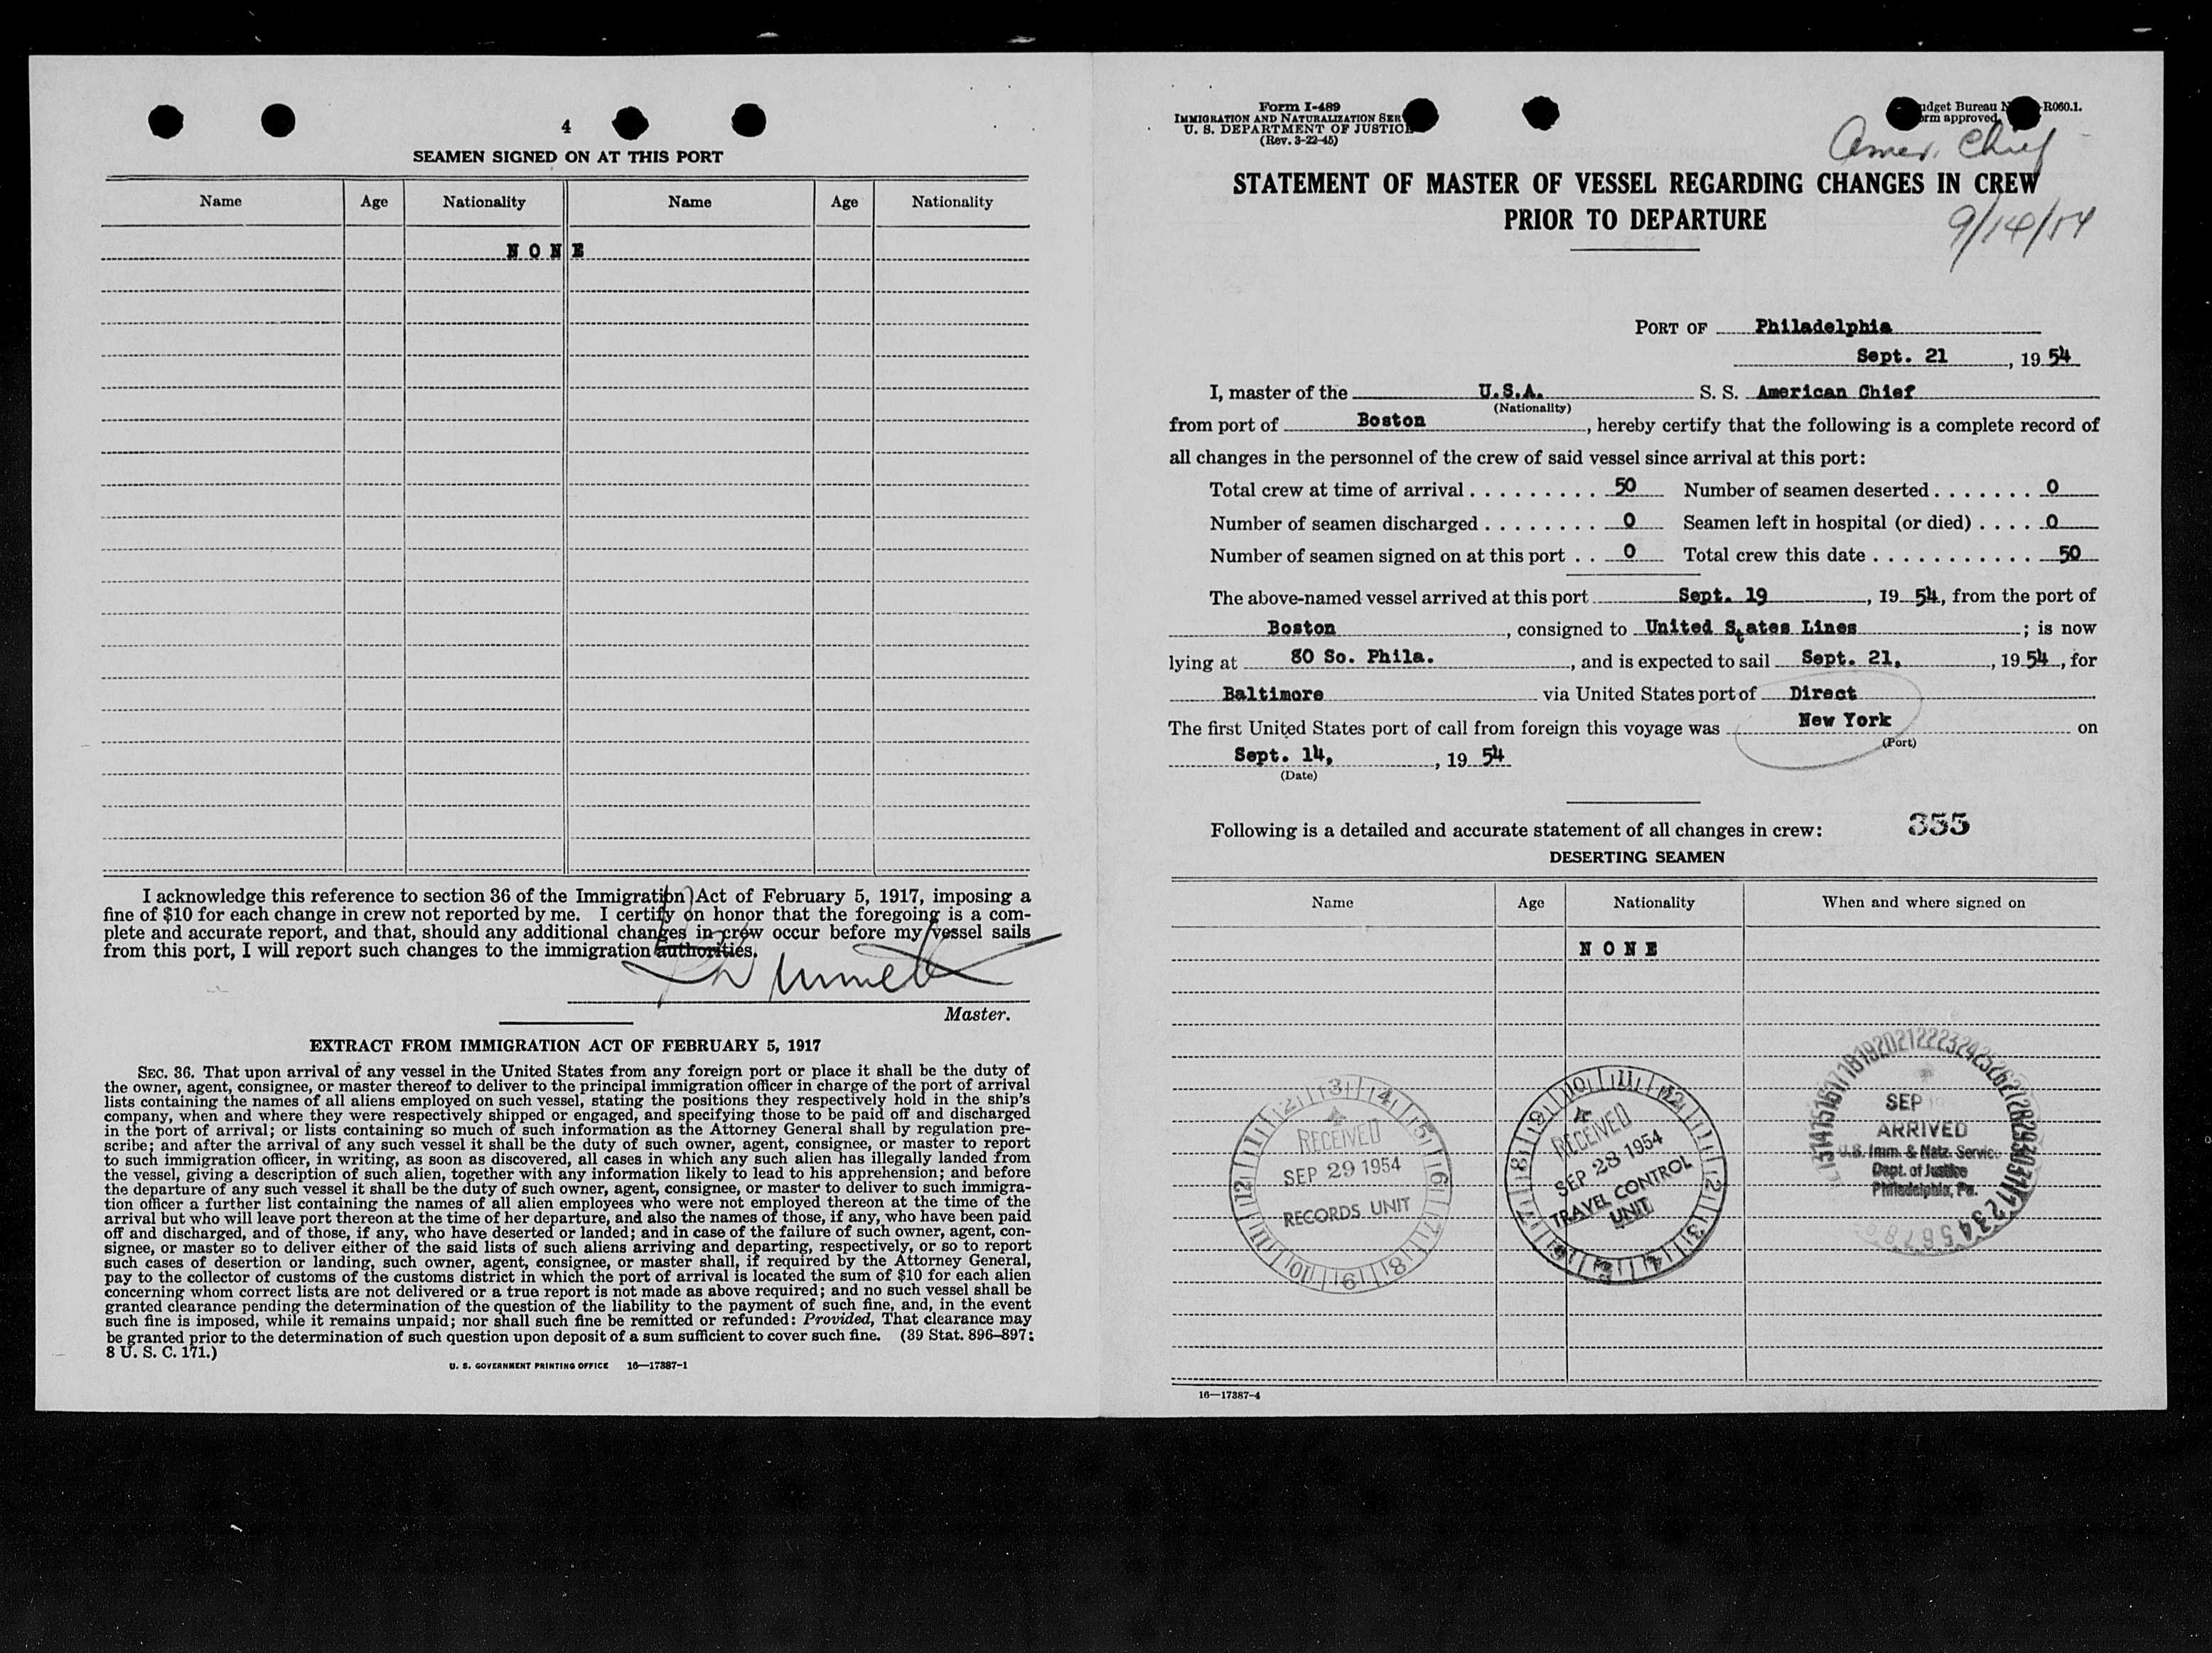 4
SEAMEN SIGNED ON AT THIS PORT
Name Age Nationality Name Age Nationality
NONE
I acknowledge this reference to section 36 of the Immigration Act of February 5, 1917, imposing a
fine of $10 for each change in crew not reported by me. I certify on honor that the foregoing is a com-
plete and accurate report, and that, should any additional changes in crew occur before my vessel sails
from this port, I will report such changes to the immigration authorities.
Master.
EXTRACT FROM IMMIGRATION ACT OF FEBRUARY 5, 1917
SEC. 36. That upon arrival of any vessel in the United States from any foreign port or place it shall be the duty of
the owner, agent, consignee, or master thereof to deliver to the principal immigration officer in charge of the port of arrival
lists containing the names of all aliens employed on such vessel, stating the positions they respectively hold in the ship's
company, when and where they were respectively shipped or engaged, and specifying those to be paid off and discharged
in the port of arrival; or lists containing so much of such information as the Attorney General shall by regulation pre-
scribe; and after the arrival of any such vessel it shall be the duty of such owner, agent, consignee, or master to report
to such immigration officer, in writing, as soon as discovered, all cases in which any such alien has illegally landed from
the vessel, giving a description of such alien, together with any information likely to lead to his apprehension; and before
the departure of any such vessel it shall be the duty of such owner, agent, consignee, or master to deliver to such immigra-
tion officer a further list containing the names of all alien employees who were not employed thereon at the time of the
arrival but who will leave port thereon at the time of her departure, and also the names of those, if any, who have been paid
off and discharged, and of those, if any, who have deserted or landed; and in case of the failure of such owner, agent, con-
signee, or master so to deliver either of the said lists of such aliens arriving and departing, respectively, or so to report
such cases of desertion or landing, such owner, agent, consignee, or master shall, if required by the Attorney General,
pay to the collector of customs of the customs district in which the port of arrival is located the sum of $10 for each alien
concerning whom correct lists are not delivered or a true report is not made as above required; and no such vessel shall be
granted clearance pending the determination of the question of the liability to the payment of such fine, and, in the event
such fine is imposed, while it remains unpaid; nor shall such fine be remitted or refunded: Provided, That clearance may
be granted prior to the determination of such question upon deposit of a sum sufficient to cover such fine. (39 Stat. 896-897;
8 U. S. C. 171.)
U. S. GOVERNMENT PRINTING OFFICE 16—17387-1
Form I-489
IMMIGRATION AND NATURALIZATION SER
U. S. DEPARTMENT OF JUSTICE
(Rev. 3-22-45)
dget Bureau N R060.1.
rm approved.
Amer. Chief
STATEMENT OF MASTER OF VESSEL REGARDING CHANGES IN CREW
PRIOR TO DEPARTURE
9/14/54
PORT OF Philadelphia
Sept. 21, 1954
I, master of the U.S.A. S. S. American Chief
(Nationality)
from port of Boston, hereby certify that the following is a complete record of
all changes in the personnel of the crew of said vessel since arrival at this port:
Total crew at time of arrival . . . . . . . . . 50 Number of seamen deserted . . . . . . . 0
Number of seamen discharged . . . . . . . . 0 Seamen left in hospital (or died) . . . . 0
Number of seamen signed on at this port . . 0 Total crew this date . . . . . . . . . . . 50
The above-named vessel arrived at this port Sept. 19, 1954, from the port of
Boston, consigned to United States Lines; is now
lying at 80 So. Phila., and is expected to sail Sept. 21, , 1954, for
Baltimore via United States port of Direct
The first United States port of call from foreign this voyage was New York on
(Port)
Sept. 14, , 1954
(Date)
Following is a detailed and accurate statement of all changes in crew: 355
DESERTING SEAMEN
Name Age Nationality When and where signed on
NONE
RECEIVED
SEP 29 1954
RECORDS UNIT
RECEIVED
SEP 28 1954
TRAVEL CONTROL
UNIT
SEP
ARRIVED
U.S. Imm. & Natz. Service
Dept. of Justice
Philadelphia, Pa.
16—17387-4